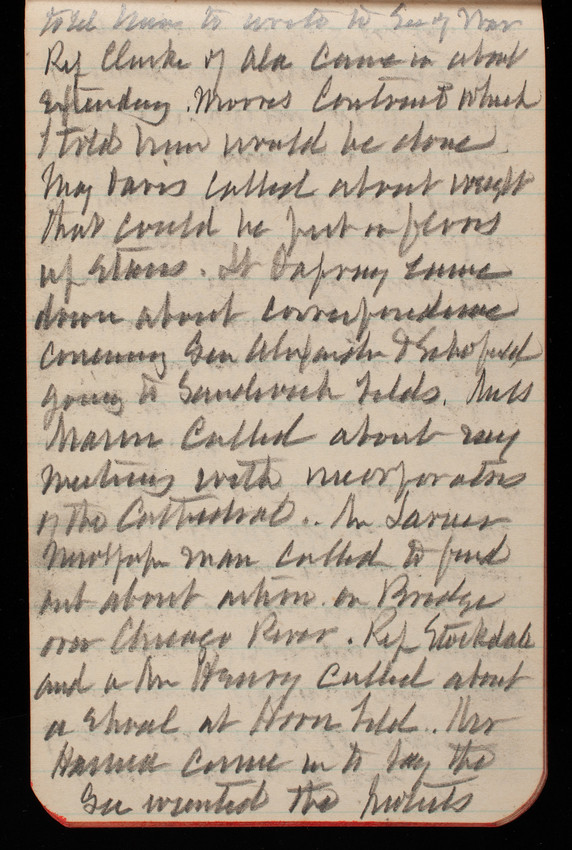 told him to write to Sec of War
Rep Clarke of Ala came in about
Extending Morris Contract which
I told him would be done
Maj Davis called about weight
that could be put on floors
of Stairs. Lt came
down about correspondence
concerning Gen Alexander & Schofield
going to Sandwich Islds.
called about my
meeting with incorporators
of the Cathedral.. Mr Larner
Newspaper man called to find
out about action on Bridge
over Chicago River. Rep Stockdale
and a Mr Henry called about
a Shoal at Horn Isld. Mr
came in to say the
Sec wanted the